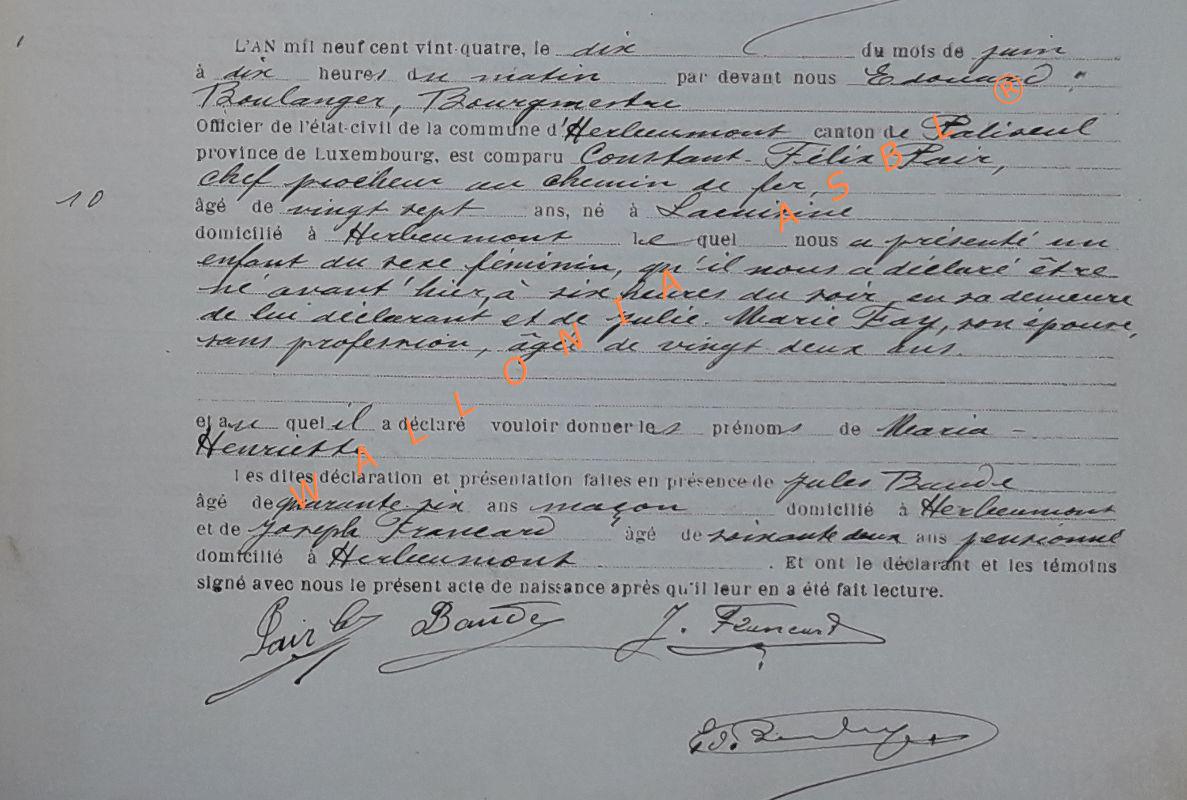 L'AN mil neuf cent vint-quatre, le dix du mois de juin
à dix heures du matin par devant nous Edouard
Boulanger, Bourgmestre
Officier de l'état-civil de la commune d'Herbeumont canton de Paliseul
province de Luxembourg, est comparu Constant-Félix Pair,
chef piocheur au chemin de fer,
10
âgé de vingt sept ans, né à Lacuisine
domicilié à Herbeumont le quel nous a présenté un
enfant du sexe féminin, qu'il nous a déclaré être
né avant'hier, à six heures du soir, en sa demeure
de lui déclarant et de Julie-Marie Fay, son épouse,
sans profession, âgée de vingt deux ans.
et au quel il a déclaré vouloir donner les prénoms de Maria-
Henriette
Les dites déclaration et présentation faites en présence de Jules Baude
âgé de quarante six ans maçon domicilié à Herbeumont
et de Joseph Francard âgé de soixante deux ans pensionné
domicilié à Herbeumont. Et ont le déclarant et les témoins
signé avec nous le présent acte de naissance après qu'il leur en a été fait lecture.
Pair Baude J. Francard
Ed. Boulanger
WALLONIA ASBL ®